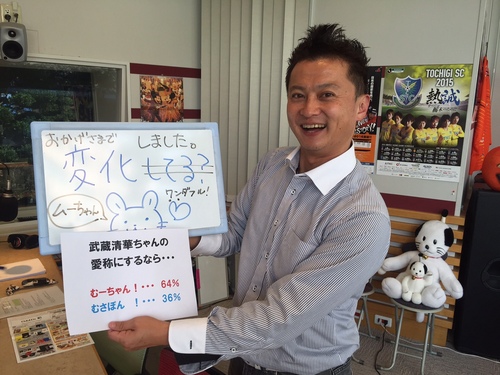 おかげさまで
しました。
変化
もてる?
ワンダフル!
ムーちゃん
武蔵清華ちゃんの
愛称にするなら・・・
むーちゃん!・・・ 64%
むさぽん !・・・ 36%
TOCHIGI SC
2015
熱誠